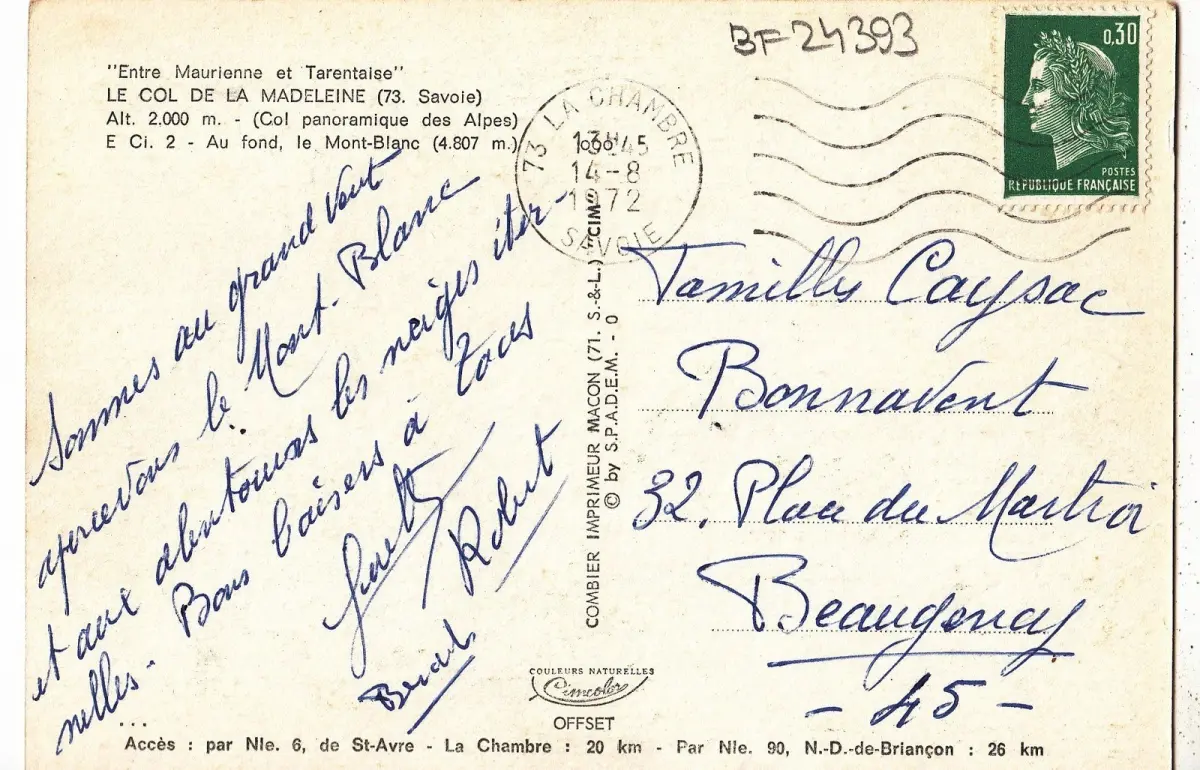 BF-24393
"Entre Maurienne et Tarentaise"
LE COL DE LA MADELEINE (73. Savoie)
Alt. 2.000 m. - (Col panoramique des Alpes)
E Ci. 2 - Au fond, le Mont-Blanc (4.807 m.)
73 LA CHAMBRE
13H45
14-8
1972
SAVOIE
0,30
POSTES
REPUBLIQUE FRANÇAISE
Sommes au grand vent
apercevons le Mont-Blanc
et aux alentours les neiges éter-
nelles.
Bons baisers à tous
Robert
...
COMBIER IMPRIMEUR MACON (71. S.-&-L.) "CIM"
© by S.P.A.D.E.M. - 0
Famille Caysac
Bonnavent
32, Place du Martroi
Beaugency
- 45 -
COULEURS NATURELLES
Cimcolor
OFFSET
Accès : par Nle. 6, de St-Avre - La Chambre : 20 km - Par Nle. 90, N.-D.-de-Briançon : 26 km